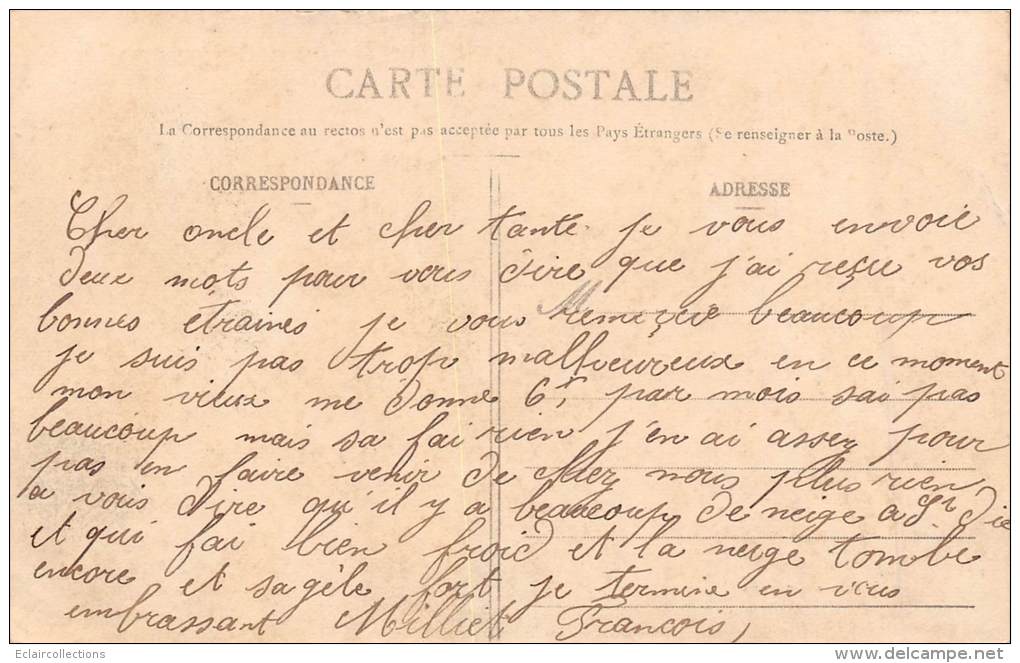 CARTE POSTALE
La Correspondance au rectos n'est pas acceptée par tous les Pays Étrangers (Se renseigner à la Poste.)
CORRESPONDANCE
ADRESSE
Cher oncle et cher tante je vous envoie
deux mots pour vous dire que j'ai reçu vos
bonnes étraines je vous remeçie beaucoup
je suis pas trop malheureux en ce moment
mon vieux me donne 6f, par mois sai pas
beaucoup mais sa fai rien j'en ai assez pour
pas en faire venir de chez nous plus rien
a vous dire qu'il y a beaucoup de neige a St die
et qui fai bien froid et la neige tombe
encore et sa gèle fort je termine en vous
embrassant Milliet François,
Eclaircollections
delcampe.net